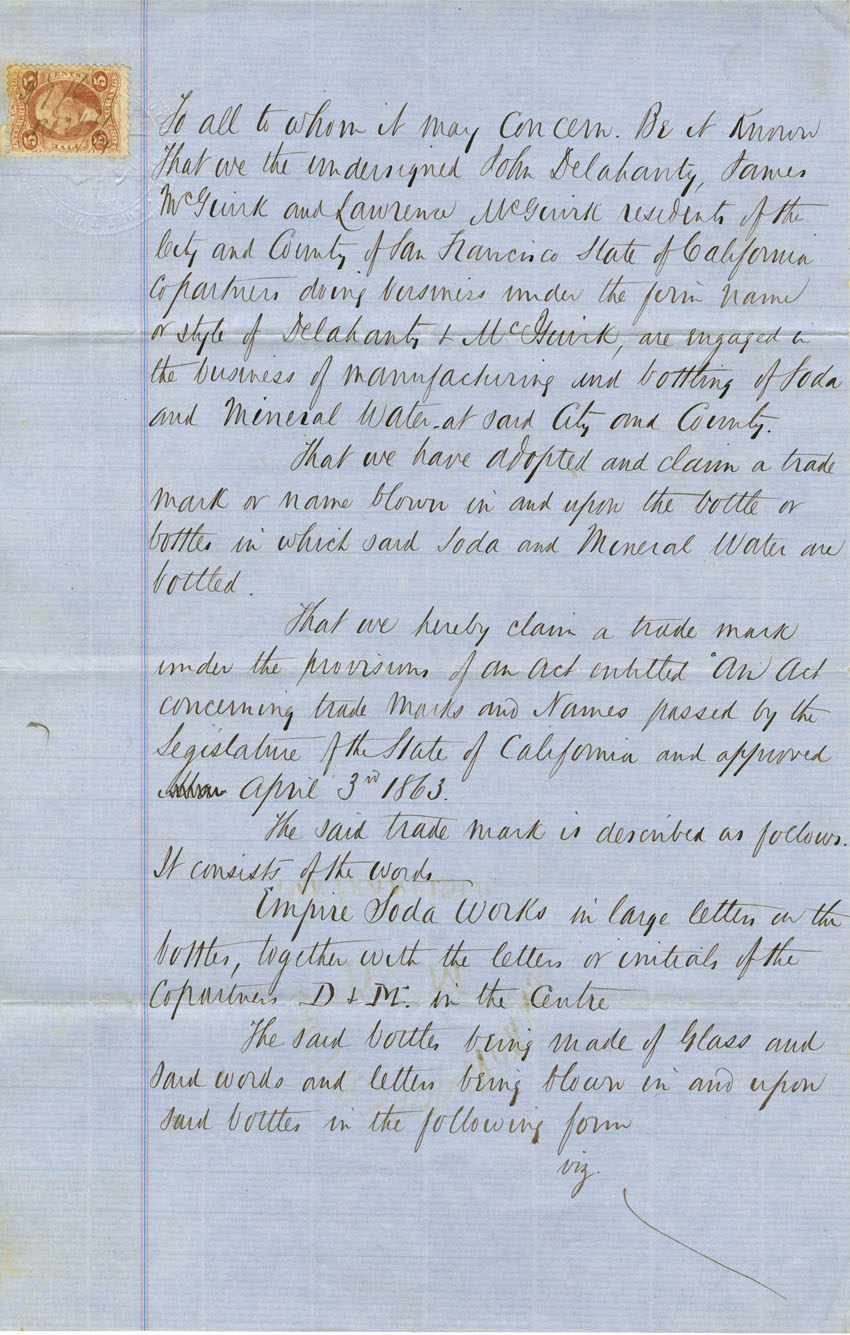 5 CENTS 5
5 FIVE 5
To all to whom it may Concern. Be it Known
That we the undersigned John Delahanty, James
McGuirk and Lawrence McGuirk residents of the
City and County of San Francisco State of California
Copartners doing business under the firm name
or style of Delahanty & McGuirk, are engaged in
the business of manufacturing and bottling of Soda
and Mineral Water at said City and County.
That we have adopted and claim a trade
mark or name blown in and upon the bottle or
bottles in which said Soda and Mineral Water are
bottled.
That we hereby claim a trade mark
under the provisions of an act entitled "An Act
concerning trade Marks and Names passed by the
Legislature of the State of California and approved
April 3rd 1863.
The said trade mark is described as follows.
It consists of the words
Empire Soda Works in large letters on the
bottles, together with the letters or initials of the
Copartners D & M. in the Centre
The said bottles being made of Glass and
said words and letters being blown in and upon
said bottles in the following form
viz.